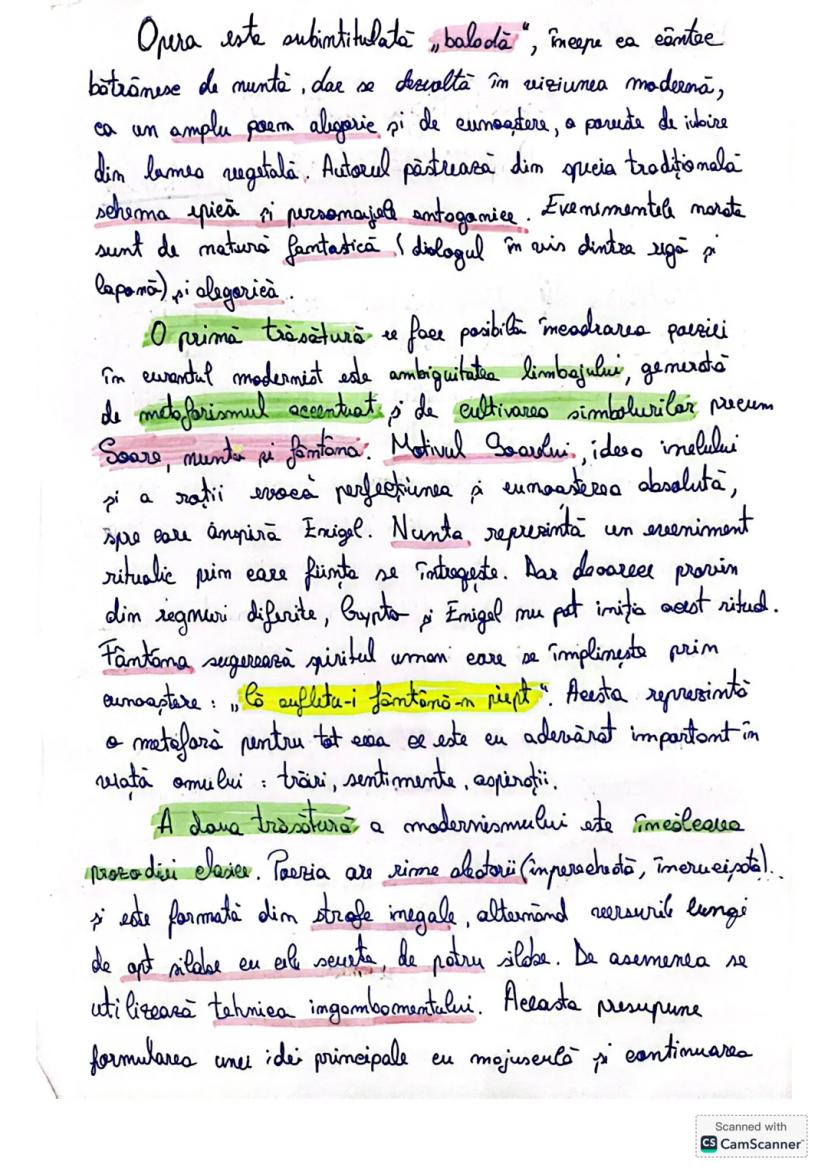 Opera este subintitulată „baladă”, începe ca cântec
bătrânesc de nuntă, dar se dezvoltă în viziunea modernă,
ca un amplu poem alegoric și de cunoaștere, o poveste de iubire
din lumea vegetală. Autorul păstrează din specia tradițională
schema epică și personajele antagonice. Evenimentele narate
sunt de natură fantastică (dialogul în vis dintre rigă și
laponă) și alegorică.
O primă trăsătură ce face posibilă încadrarea poeziei
în curentul modernist este ambiguitatea limbajului, generată
de metaforismul accentuat și de cultivarea simbolurilor precum
Soare, nunta și fântâna. Motivul Soarelui, ideea inelului
și a roții evocă perfecțiunea și cunoașterea absolută,
spre care aspiră Enigel. Nunta reprezintă un eveniment
ritualic prin care ființa se întregește. Dar deoarece provin
din regnuri diferite, Crypto și Enigel nu pot iniția acest ritual.
Fântâna sugerează spiritul uman care se împlinește prin
cunoaștere: „Că sufletu-i fântână-n piept”. Acesta reprezintă
o metaforă pentru tot ceea ce este cu adevărat important în
viață omului: trăiri, sentimente, aspirații.
A doua trăsătură a modernismului este încălcarea
prozodiei clasice. Poezia are rime aleatorii (împerecheată, încrucișată).
și este formată din strofe inegale, alternând versurile lungi
de opt silabe cu cele scurte, de patru silabe. De asemenea se
utilizează tehnica ingambamentului. Aceasta presupune
formularea unei idei principale cu majusculă și continuarea
Scanned with
CS CamScanner